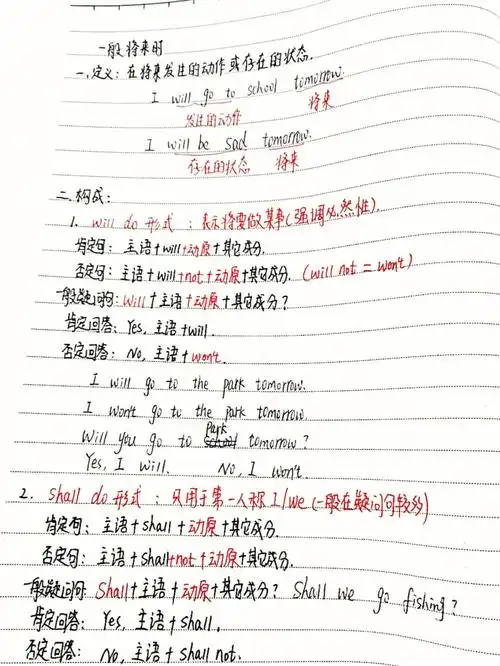 一般将来时
一.定义：在将来发生的动作或存在的状态.
I will go to school tomorrow.
发生的动作 将来
I will be sad tomorrow.
存在的状态 将来
二.构成：
1. will do 形式：表示将要做某事(强调必然性).
肯定句：主语+will+动原+其它成分.
否定句：主语+will+not+动原+其它成分. (will not = won't)
一般疑问句：Will+主语+动原+其它成分？
肯定回答：Yes, 主语+will.
否定回答：No, 主语+won't.
I will go to the park tomorrow.
I won't go to the park tomorrow.
Will you go to school park tomorrow?
Yes, I will. No, I won't.
2. shall do 形式：只用于第一人称 I/we (一般在疑问句较多)
肯定句：主语+shall+动原+其它成分.
否定句：主语+shall+not+动原+其它成分.
一般疑问句：Shall+主语+动原+其它成分？ Shall we go fishing?
肯定回答：Yes, 主语+shall.
否定回答：No, 主语+shall not.